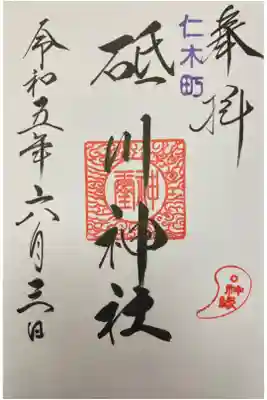 奉拝
仁木町
砥川神社
令和五年六月三日